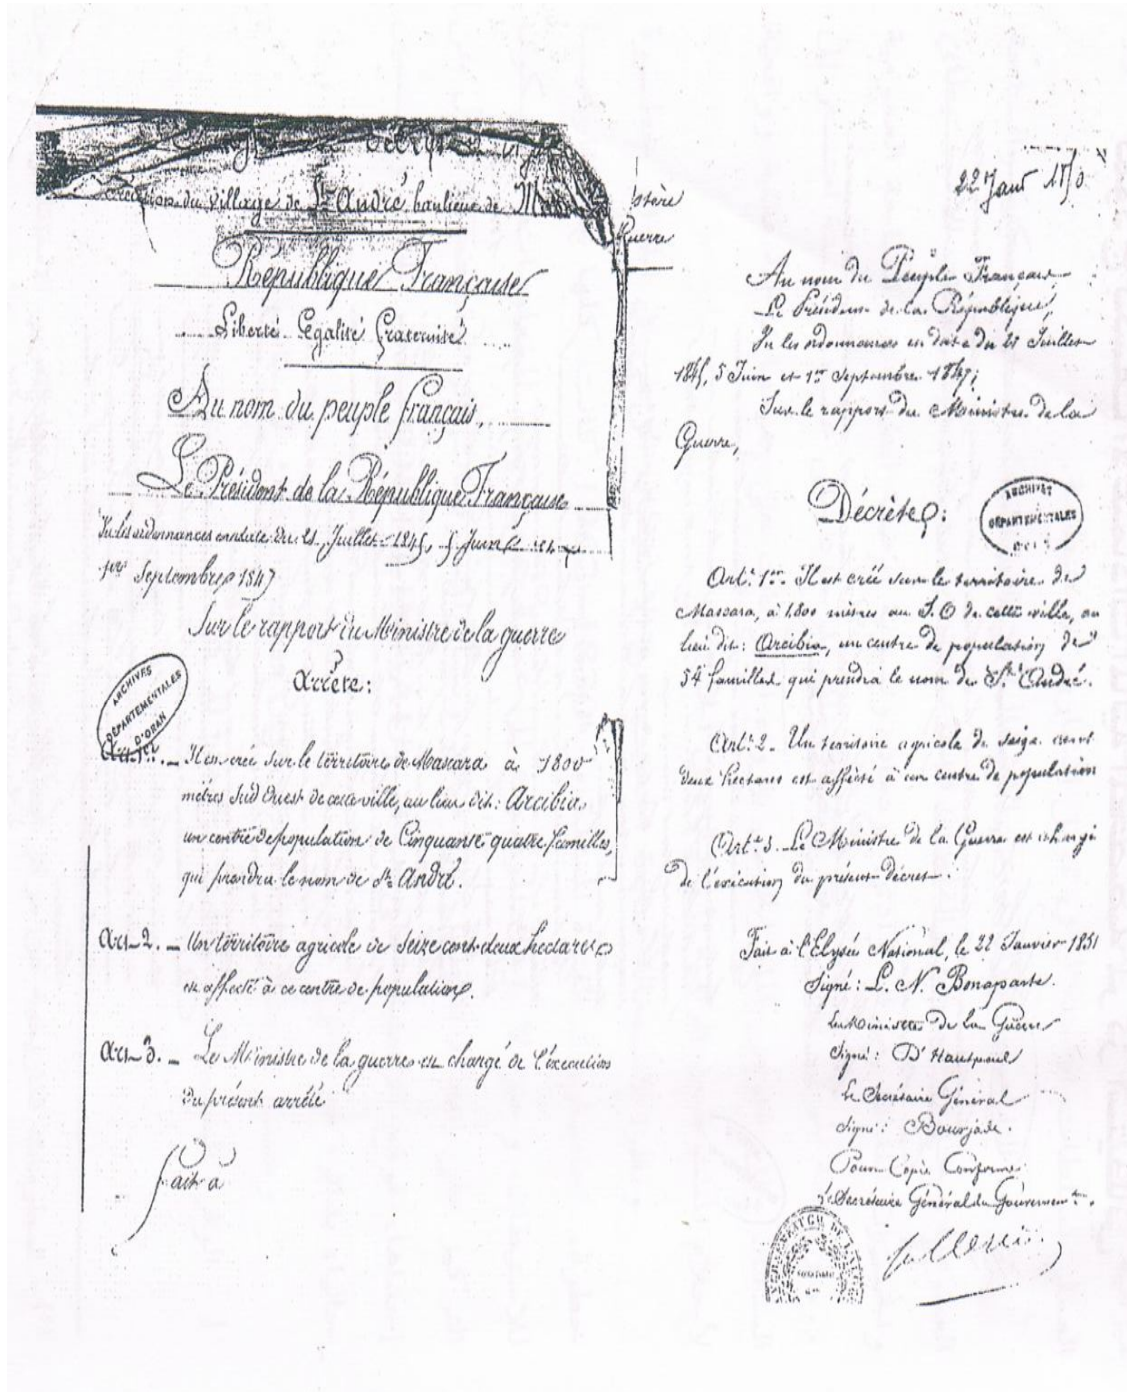 création du village de St André banlieue de
République Française
Liberté Egalité fraternité
Au nom du peuple français,
Le Président de la République Française
Vu les ordonnances en date du 21 Juillet 1845, 5 Juin et
1er Septembre 1847
Sur le rapport du Ministre de la guerre
Arrête:
ARCHIVES
DÉPARTEMENTALES
D'ORAN
Art 1er. _ Il est créé sur le territoire de Mascara à 1800
mètres Sud Ouest de cette ville, au lieu dit: Arcibia
un centre de population de Cinquante quatre familles,
qui prendra le nom de St André.
Art_2. _ Un territoire agricole de Seize cent deux hectares
est affecté à ce centre de population.
Art_3. _ Le Ministre de la guerre est chargé de l'éxecution
du présent arrêté
fait à
stère
Guerre
22 Janv
Au nom du Peuple Français
Le Président de la République,
Vu les ordonnances en date du 21 Juillet
1845, 5 Juin et 1er Septembre 1847;
Sur le rapport du Ministre de la
Guerre,
Décrète:
ARCHIVES
DÉPARTEMENTALES
Art. 1er. Il est créé sur le territoire de
Mascara, à 1,800 mètres au S.O de cette ville, au
lieu dit: Arcibia, un centre de population de
54 familles qui prendra le nom de St André.
Art. 2. Un territoire agricole de seize cent
deux hectares est affecté à ce centre de population
Art. 3. Le Ministre de la Guerre est chargé
de l'exécution du présent décret.
Fait à l'Elysée National, le 22 Janvier 1851
Signé: L. N. Bonaparte.
Le Ministre de la Guerre
Signé: D'Hautpoul
Le Secrétaire Général
Signé: Bourjade.
Pour Copie Conforme
Le Secrétaire Général du Gouvernement.